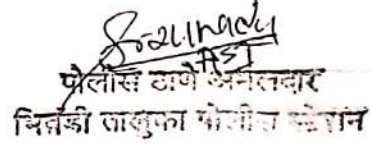 ASI
पोलीस ठाणे अंमलदार
भिवंडी तालुका पोलीस स्टेशन